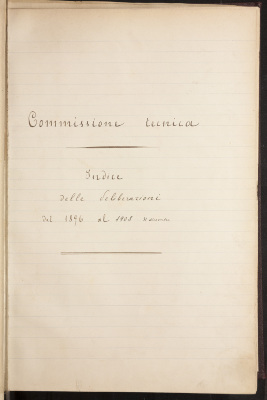 Commissione tecnica
Indice
delle deliberazioni
dal 1896 al 1908